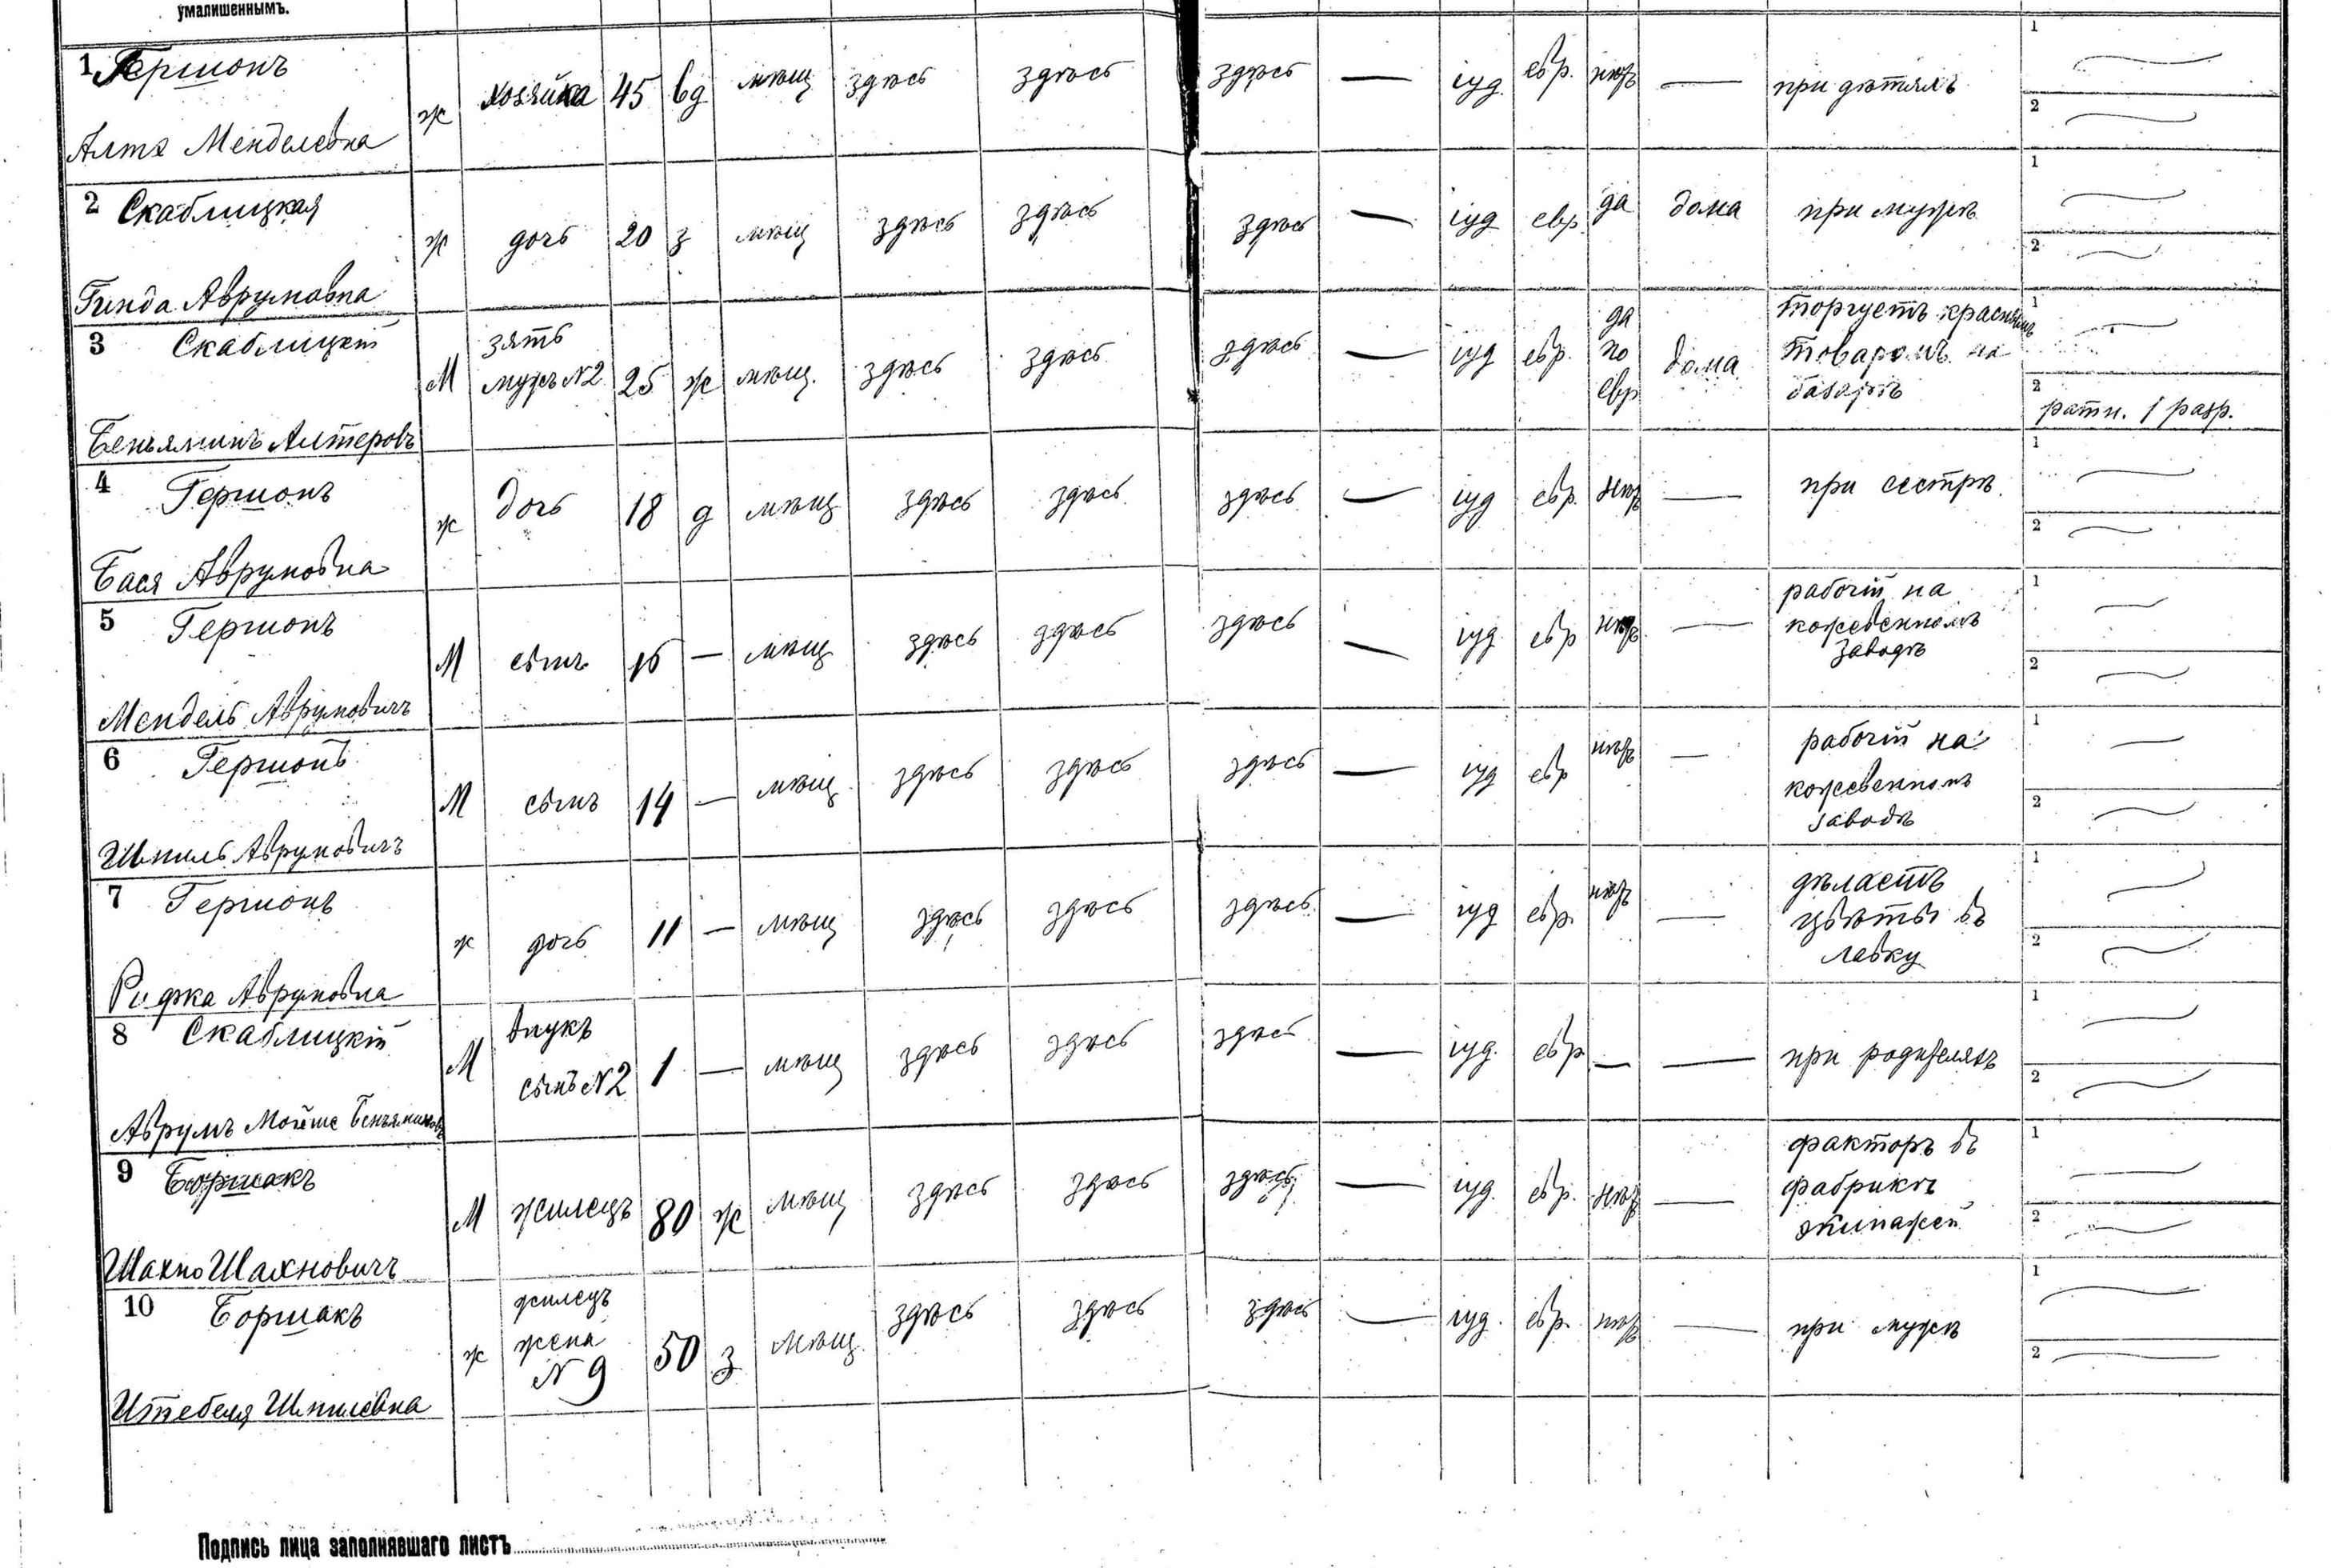 умалишеннымъ.
1 Гершонъ
Алта Менделевна
ж хозяйка 45 вд мѣщ здѣсь здѣсь здѣсь — іуд. евр. нѣтъ — при дѣтяхъ
1
2
2 Скаблицкая
Гинда Аврумовна
ж дочь 20 з мѣщ здѣсь здѣсь здѣсь — іуд евр. да дома при мужѣ
1
2
3 Скаблицкій
Беньяминъ Алтеровъ
М зять
мужъ №2 25 ж мѣщ. здѣсь здѣсь здѣсь — іуд евр. да
по
евр дома торгуетъ краснымъ
товаромъ на
базарѣ
1
2
ратн. 1 разр.
4 Гершонъ
Бася Аврумовна
ж дочь 18 д мѣщ здѣсь здѣсь здѣсь — іуд евр. нѣтъ — при сестрѣ
1
2
5 Гершонъ
Мендель Аврумовичъ
М сынъ 16 — мѣщ здѣсь здѣсь здѣсь — іуд евр нѣтъ — рабочій на
кожевенномъ
заводѣ
1
2
6 Гершонъ
Шмиль Аврумовичъ
М сынъ 14 — мѣщ здѣсь здѣсь здѣсь — іуд евр нѣтъ — рабочій на
кожевенномъ
заводѣ
1
2
7 Гершонъ
Рифка Аврумовна
ж дочь 11 — мѣщ здѣсь здѣсь здѣсь — іуд евр. нѣтъ — дѣлаетъ
цвѣты въ
лавку
1
2
8 Скаблицкій
Аврумъ Мойше Беньяминовъ
М внукъ
сынъ №2 1 — мѣщ здѣсь здѣсь здѣсь — іуд. евр — — при родителяхъ
1
2
9 Боршакъ
Шахно Шахновичъ
М жилецъ 80 ж мѣщ здѣсь здѣсь здѣсь — іуд. евр. нѣтъ — факторъ въ
фабрикѣ
экипажей
1
2
10 Боршакъ
Итебеля Шмилевна
ж жилецъ
жена
№ 9 50 з мѣщ. здѣсь здѣсь здѣсь — іуд. евр. нѣтъ — при мужѣ
1
2
Подпись лица заполнявшаго листъ